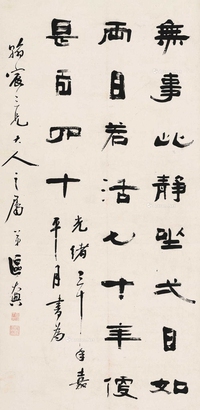 無事此靜坐弌日如
兩日若活七十年便
是百四十
光緒三十年嘉
平月書為
三兄大人之屬 弟區大典